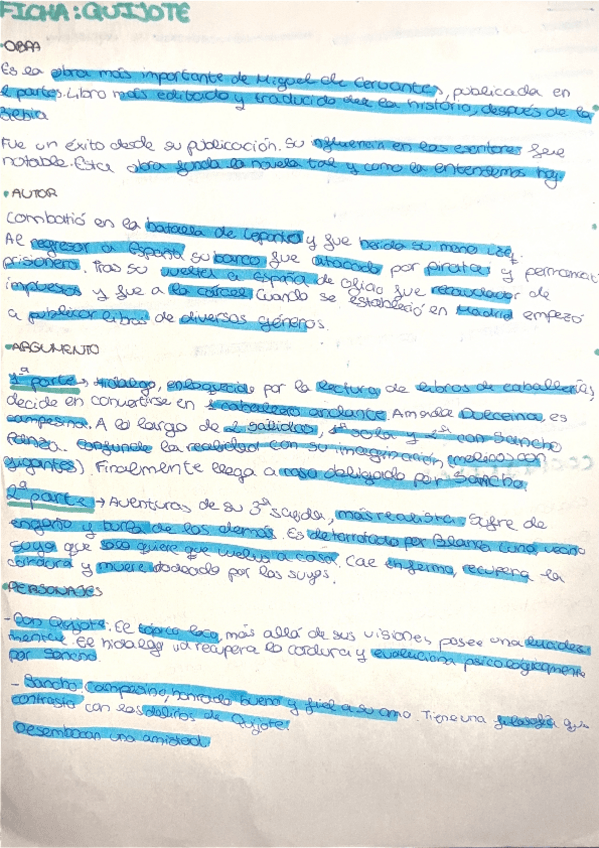 FICHA: QUIJOTE
• OBRA
Es la obra más importante de Miguel de Cervantes, publicada en
2 partes. Libro más editado y traducido de la historia, después de la
Biblia
Fue un éxito desde su publicación. Su influencia en los escritores fue
notable. Esta obra funda la novela tal y como la entendemos hoy
• AUTOR
Combatió en la batalla de Lepanto y fue herida su mano izq.
Al regresar a España su barco fue atacado por piratas y permaneció
prisionero. Tras su vuelta a España de oficio fue recaudador de
impuestos y fue a la cárcel. Cuando se estableció en Madrid empezó
a publicar libros de diversos géneros.
• ARGUMENTO
1ª parte → Hidalgo, enloquecido por la lectura de libros de caballerías,
decide en convertirse en caballero andante. Amada Dulcinea, es
campesina. A lo largo de 2 salidas, 1ª sola y 2ª con Sancho
Panza. confunde la realidad con su imaginación (molinos con
gigantes) Finalmente llega a casa obligado por Sancho.
2ª parte → Aventuras de su 3ª salida, más realista. Sufre de
engaño y burla de los demás. Es derrotado por Blanca Luna, vecino
suyo que solo quiere que vuelva a casa. Cae enfermo, recupera la
cordura y muere rodeado por los suyos.
• PERSONAJES
- Don Quijote. El loco, más allá de sus visiones posee una lucidez
mental. El hidalgo recupera la cordura y evoluciona psicologicamente
por Sancho
- Sancho. Campesino, honrado bueno y fiel a su amo. Tiene una filosofía que
contrasta con los delirios de Quijote.
Desembocan una amistad